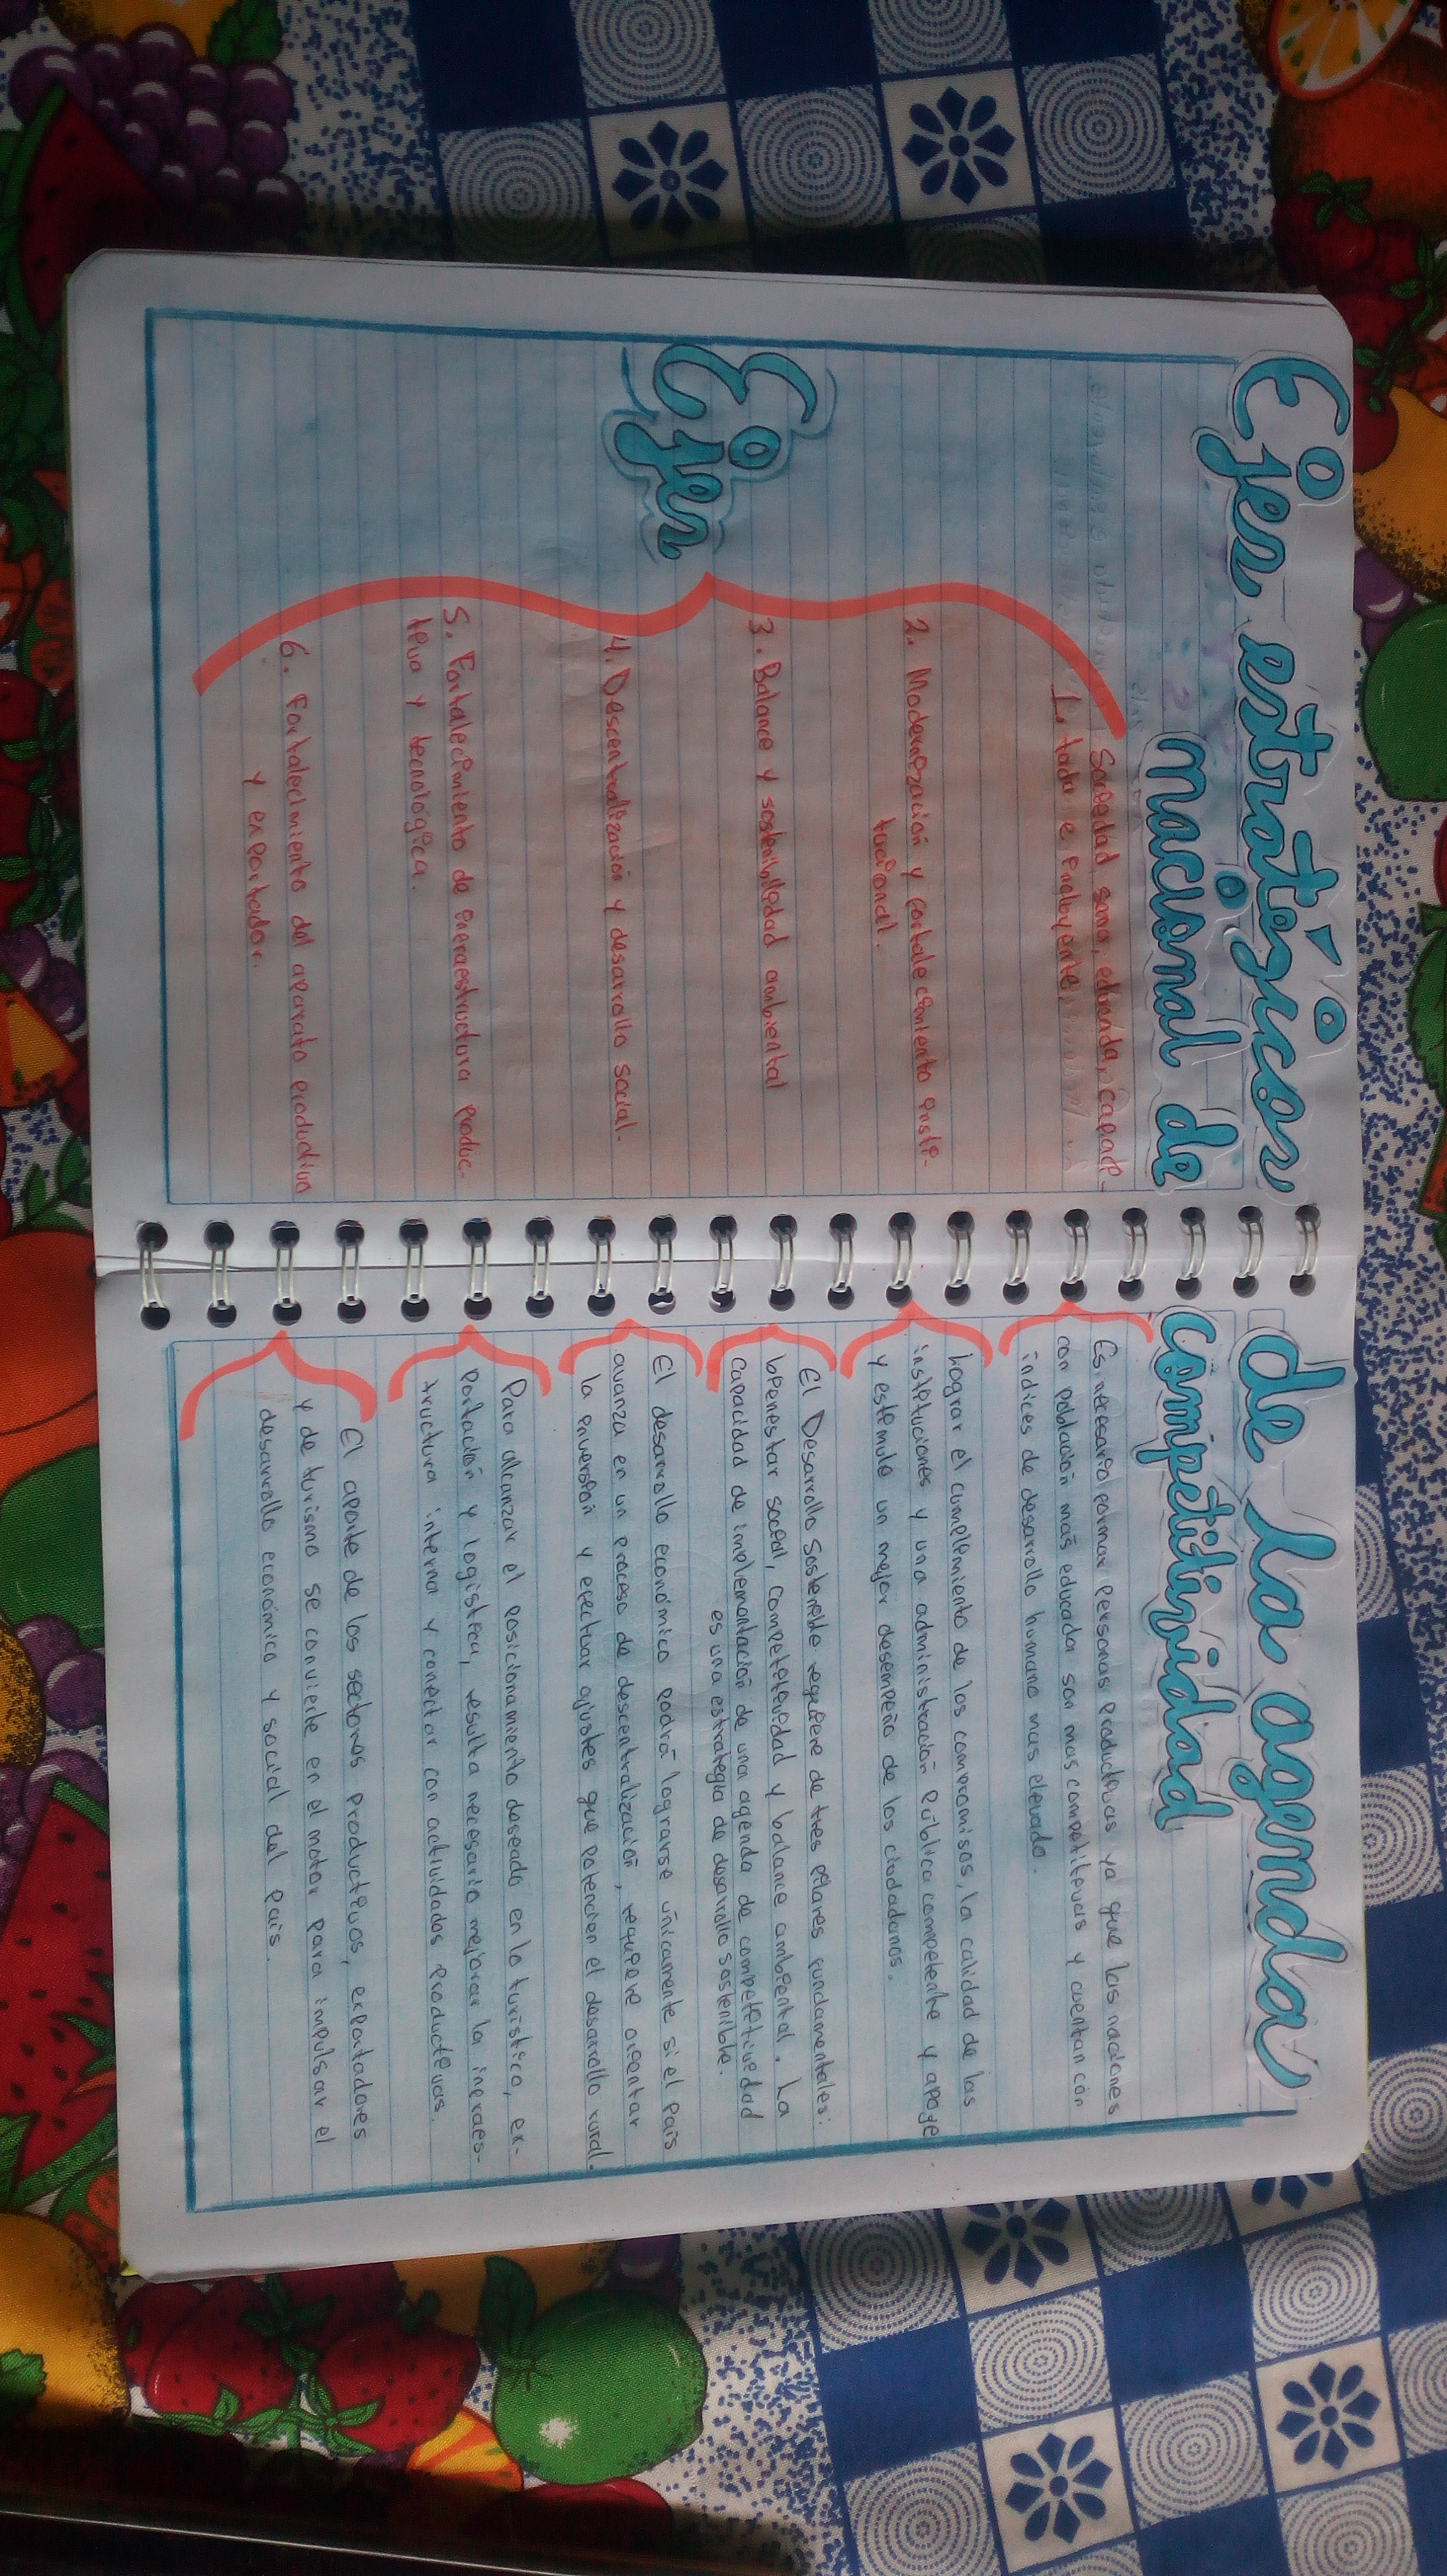 Ejes estratégicos de la agenda
nacional de competitividad
Ejes
Sociedad sana, educada, capaci-
1. tada e incluyente.
2. Modernización y fortalecimiento insti-
tucional.
3. Balance y sostenibilidad ambiental
4. Descentralización y desarrollo social.
5. Fortalecimiento de infraestructura produc-
tiva y tecnológica.
6. Fortalecimiento del aparato productivo
y exportador.
Es necesario formar personas productivas ya que las naciones
con población más educada son mas competitivas y cuentan con
indices de desarrollo humano mas elevado.
Lograr el cumplimiento de los compromisos, la calidad de las
instituciones y una administración pública competente y apoye
y estimule un mejor desempeño de los ciudadanos.
El Desarrollo Sostenible requiere de tres pilares fundamentales:
bienestar social, competitividad y balance ambiental. La
capacidad de implementación de una agenda de competitividad
es una estrategia de desarollo sostenible.
El desarrollo económico podrá lograrse únicamente si el país
avanza en un proceso de descentralización, requiere orientar
la inversión y efectuar ajustes que potencien el desarrollo rural.
Para alcanzar el posicionamiento deseado en lo turístico, ex-
portación y logística, resulta necesario mejorar la infraes-
tructura interna y conectar con actividades productivas.
El aporte de los sectores productivos, exportadores
y de turismo se convierte en el motor para impulsar el
desarrollo económico y social del país.